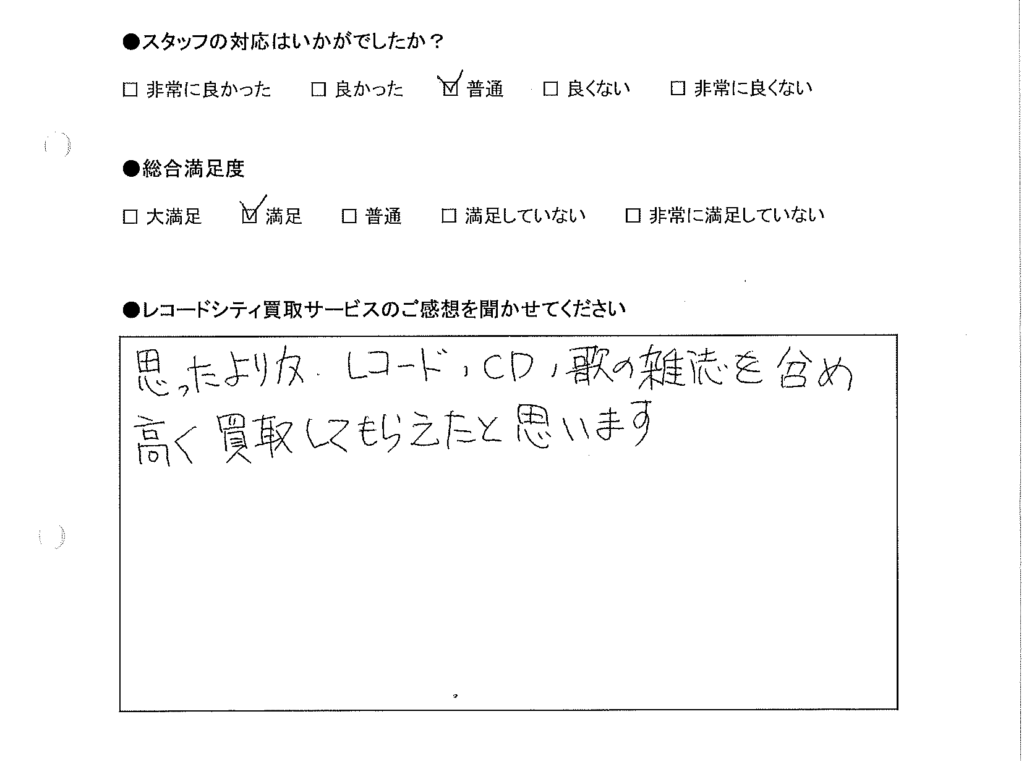 ●スタッフの対応はいかがでしたか？
□ 非常に良かった □ 良かった ☑ 普通 □ 良くない □ 非常に良くない
●総合満足度
□ 大満足 ☑ 満足 □ 普通 □ 満足していない □ 非常に満足していない
●レコードシティ買取サービスのご感想を聞かせてください
思ったより レコード, CD, 歌の雑誌を含め
高く買取してもらえたと思います